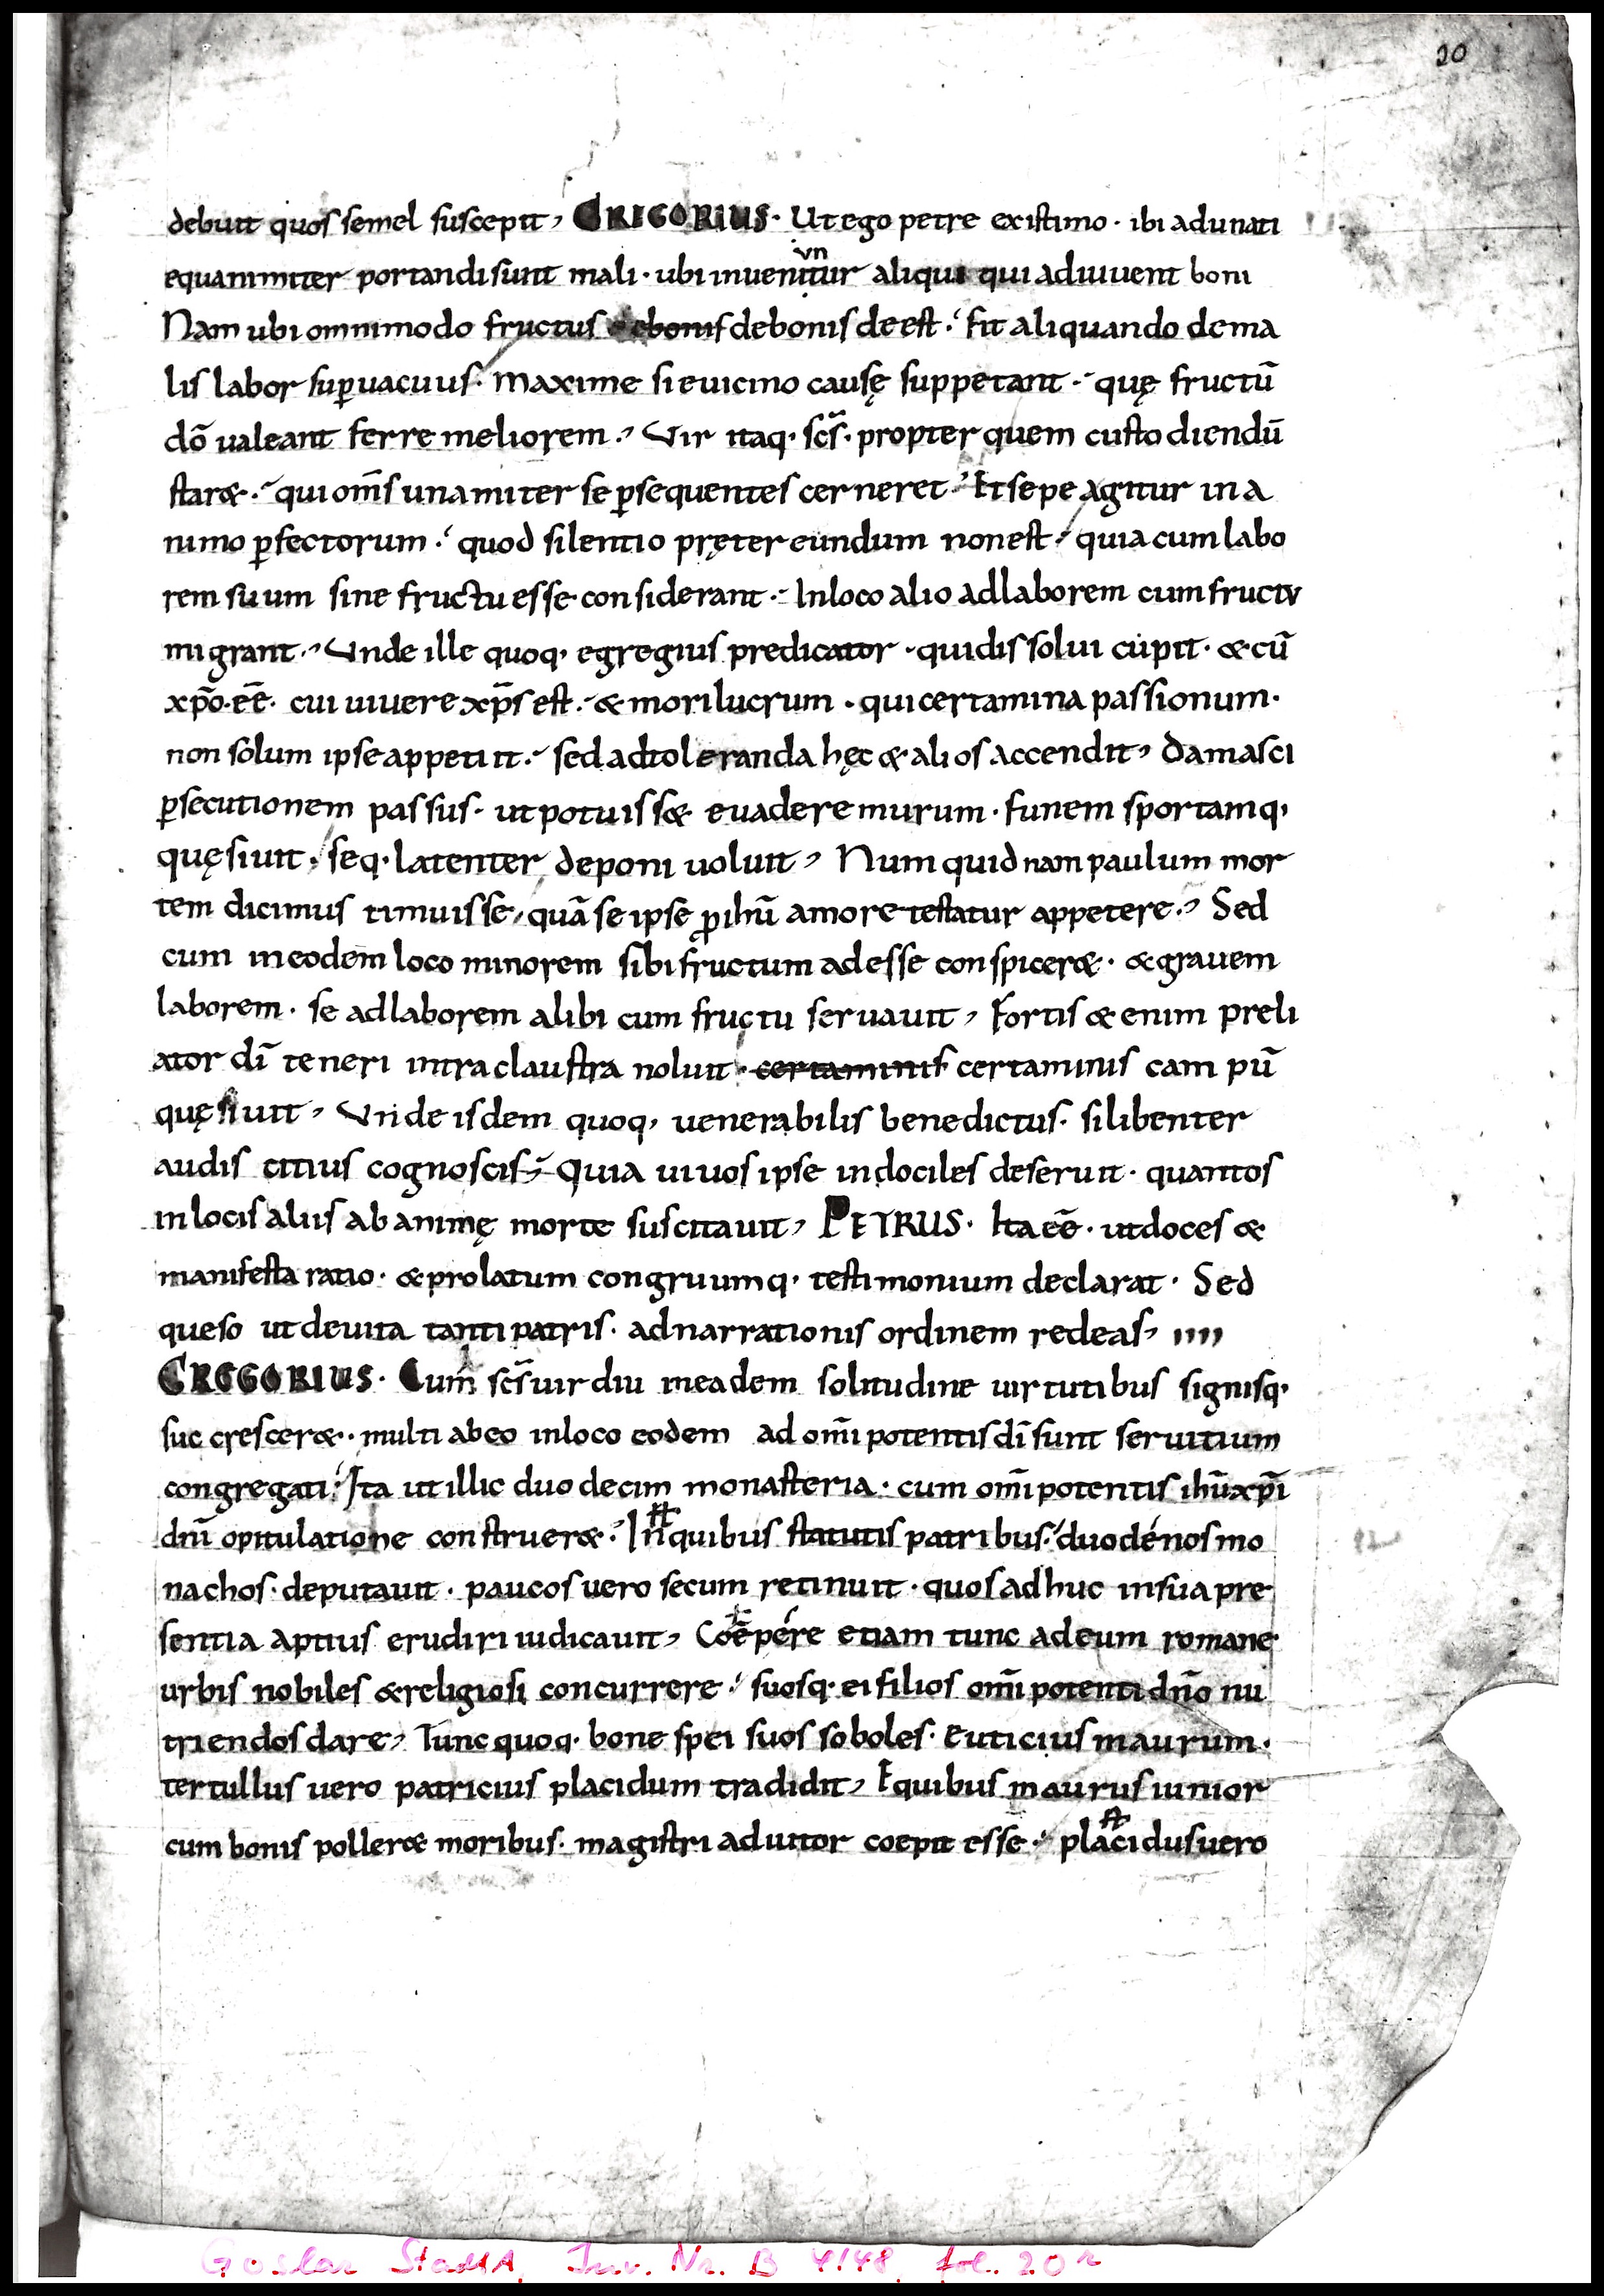 20
debuit quos semel suscepit, GREGORIUS. Ut ego petre existimo. ibi adunati
vn
equanimiter portandi sunt mali. ubi inuenitur aliqui qui adiuuent boni
Nam ubi omnimodo fructus debonis de est. Fit aliquando de ma
lis labor sup̄uacuus. maxime si euicino causę suppetant. quę fructū
dō ualeant ferre meliorem. Vir itaq. scs̄. propter quem custodiendū
star&. qui om̄s unamiter se p̄sequentes cerneret. Et sepe agitur in a
nimo p̄fectorum. quod silentio pręter eundum non est. quia cum labo
rem suum sine fructu esse considerant. In loco alio ad laborem cum fructv
migrant. Vnde ille quoq. egregius predicator. qui dissolui cupit. & cū
xp̄o. eē. cui uiuere xp̄s est. & mori lucrum. qui certamina passionum.
non solum ipse appetiit. sed ad toleranda hęc & alios accendit, Damasci
p̄secutionem passus. ut potuiss& euadere murum. funem sportamq.
quęsiuit. seq. latenter deponi uoluit, Num quid nam paulum mor
tem dicimus timuisse, quā se ipse ꝓ ihū amore testatur appetere. Sed
cum in eodem loco minorem sibi fructum adesse conspicer&. & grauem
laborem. se ad laborem alibi cum fructu seruauit, Fortis & enim preli
ator dī teneri intra claustra noluit. certaminis certaminis campū
quęsiuit, Vnde isdem quoq. uenerabilis benedictus. si libenter
audis citius cognoscis. Quia uiuos ipse indociles deseruit. quantos
in locis aliis ab animę morte suscitauit, PETRUS. Ita eē. ut doces &
manifesta ratio. & prolatum congruumq. testimonium declarat. Sed
queso ut de uita tanti patris. ad narrationis ordinem redeas,
GREGORIUS. Cum scs̄ uir diu in eadem solitudine uirtutibus signisq.
succrescer&. multi ab eo in loco eodem ad om̄ipotentis dī sunt seruitium
congregati. Ita ut illic duodecim monasteria. cum om̄ipotentis ihū xp̄i
dn̄i opitulatione construer&. In quibus statutis patribus. duodenos mo
nachos. deputauit. paucos uero secum retinuit. quos adhuc in sua pre
sentia aptius erudiri iudicauit, Coēpere etiam tunc ad eum romane
urbis nobiles & religiosi concurrere. suosq. ei filios om̄ipotenti dn̄o nu
triendos dare, Tunc quoq. bone spei suos soboles. Euticius maurum.
tertullus uero patricius placidum tradidit, E quibus maurus iunior
cum bonis poller& moribus. magistri adiutor coepit esse. placidus uero
Goslar StadtA, Inv. Nr. B 4148, fol. 20r